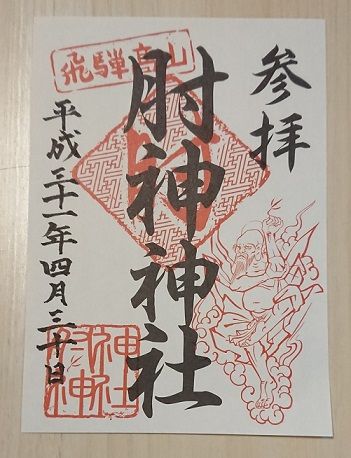 参拝
飛騨高山
肘神神社
平成三十一年四月三十日
肘神
神社